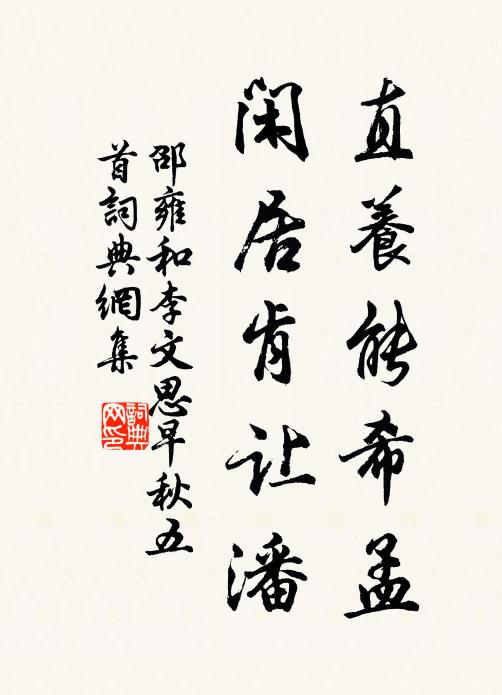 直養能希孟
閑居肯让潘
邵雍和李文思早秋五
首詞典網集
詞典网印